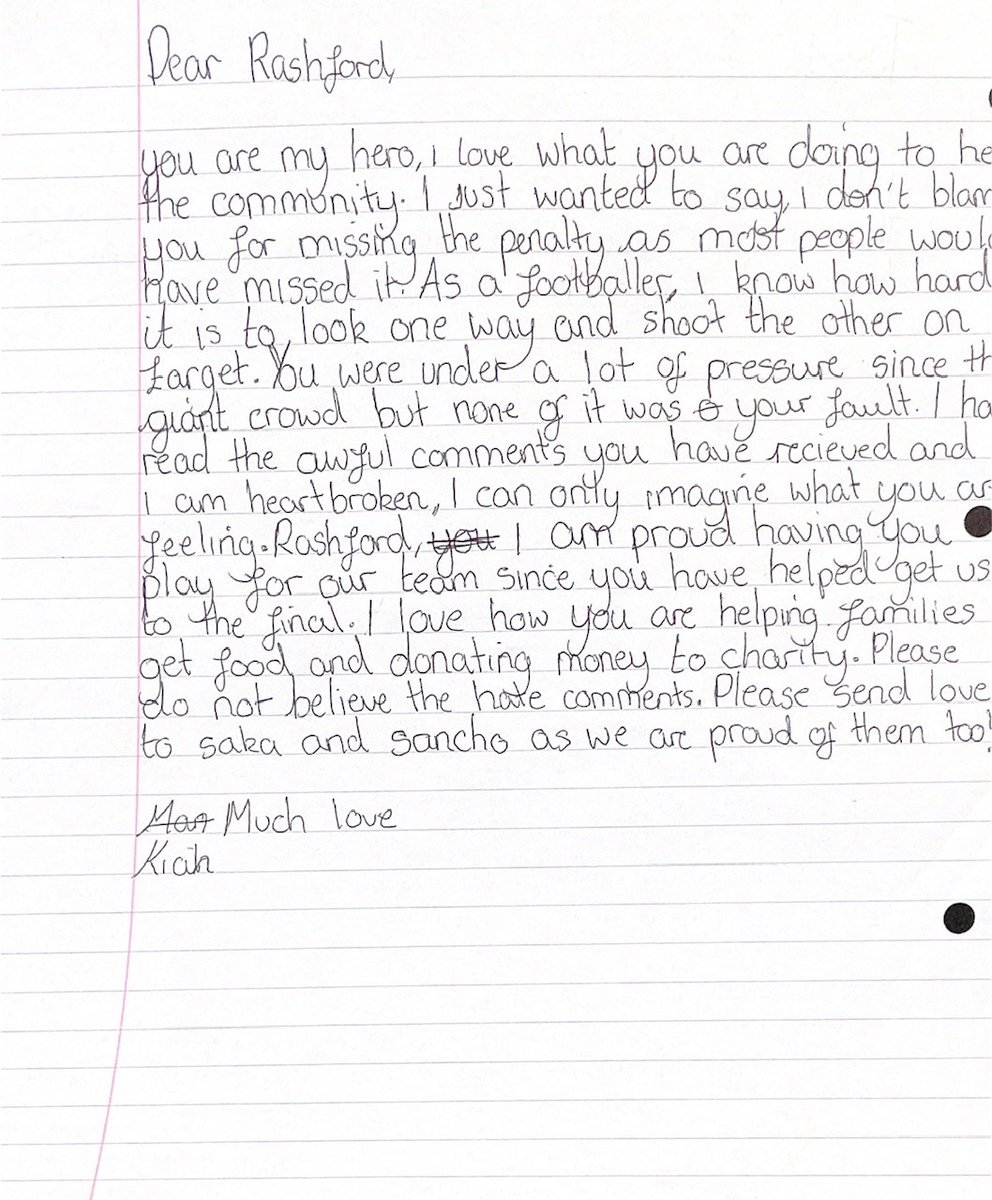 Dear Rashford,
you are my hero, i love what you are doing to he
the community. I Just wanted to say, I don't blam
you for missing the penalty as most people would
have missed it. As a footballer, I know how hard
it is to look one way and shoot the other on
target. You were under a lot of pressure since th
giant crowd but none of it was your fault. I ha
read the awful comments you have recieved and
I am heartbroken, I can only imagine what you ar
feeling. Rashford, you I am proud having you
play for our team since you have helped get us
to the final. I love how you are helping families
get food and donating money to charity. Please
do not believe the hate comments. Please send love
to saka and sancho as we are proud of them too!
Much love
Kiah